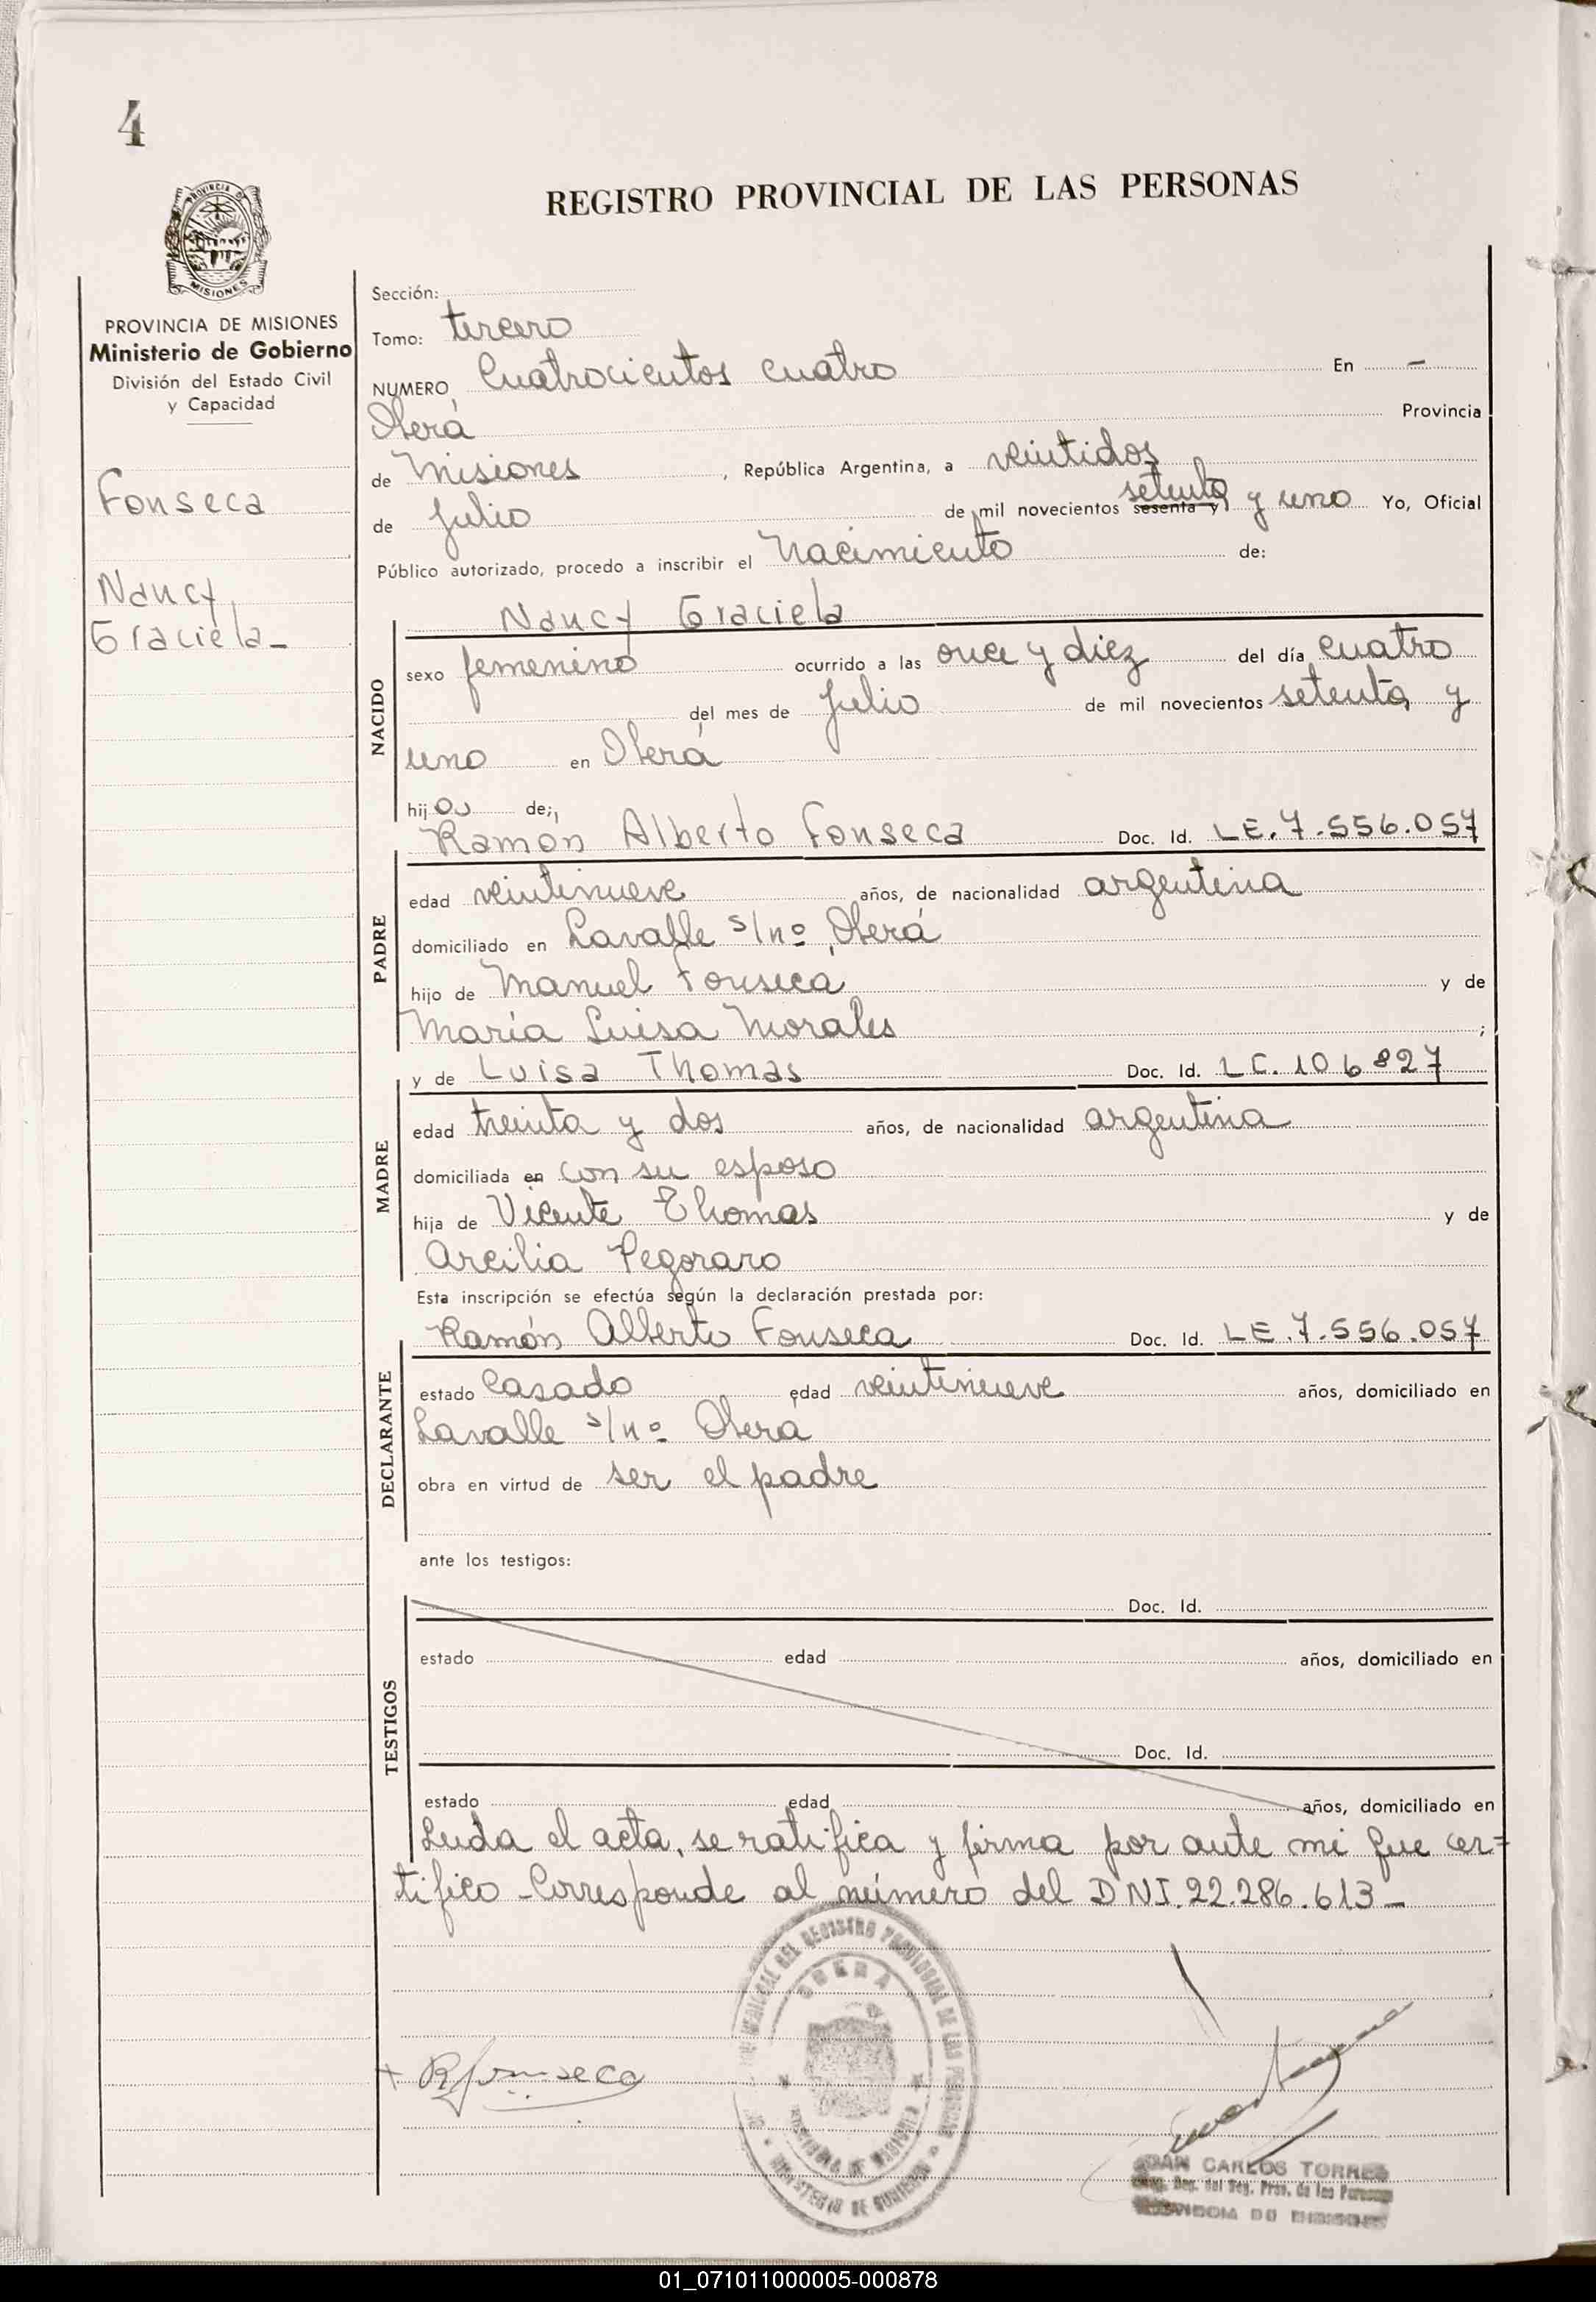 4
PROVINCIA DE
MISIONES
REGISTRO PROVINCIAL DE LAS PERSONAS
PROVINCIA DE MISIONES
Ministerio de Gobierno
División del Estado Civil
y Capacidad
Fonseca
Nancy
Graciela-
Sección:
Tomo: tercero
NUMERO Cuatrocientos cuatro En -
Oberá Provincia
de Misiones, República Argentina, a veintidos
de Julio de mil novecientos sesenta y setenta y uno Yo, Oficial
Público autorizado, procedo a inscribir el Nacimiento de:
NACIDO
Nancy Graciela
sexo femenino ocurrido a las once y diez del día cuatro
del mes de Julio de mil novecientos setenta y
uno en Oberá
hija de;
PADRE
Ramón Alberto Fonseca Doc. Id. LE.7.556.057
edad veintinueve años, de nacionalidad argentina
domiciliado en Lavalle s/nº Oberá
hijo de Manuel Fonseca y de
María Luisa Morales ;
MADRE
y de Luisa Thomas Doc. Id. LC.106827
edad treinta y dos años, de nacionalidad argentina
domiciliada en con su esposo
hija de Vicente Thomas y de
Arcilia Pegoraro
Esta inscripción se efectúa según la declaración prestada por:
DECLARANTE
Ramón Alberto Fonseca Doc. Id. LE.7.556.057
estado Casado edad veintinueve años, domiciliado en
Lavalle s/nº Obera
obra en virtud de ser el padre
ante los testigos:
TESTIGOS
Doc. Id.
estado edad años, domiciliado en
Doc. Id.
estado edad años, domiciliado en
Leida el acta, se ratifica y firma por ante mi que cer=
tifico - Corresponde al número del DNI.22.286.613-
DEL REGISTRO PROVINCIAL DE LAS PERSONAS
OBERA
PROVINCIA DE MISIONES
MINISTERIO DE GOBIERNO
+ RFonseca
JUAN CARLOS TORRES
Reg. del Reg. Prov. de las Personas
PROVINCIA DE MISIONES
01_071011000005-000878